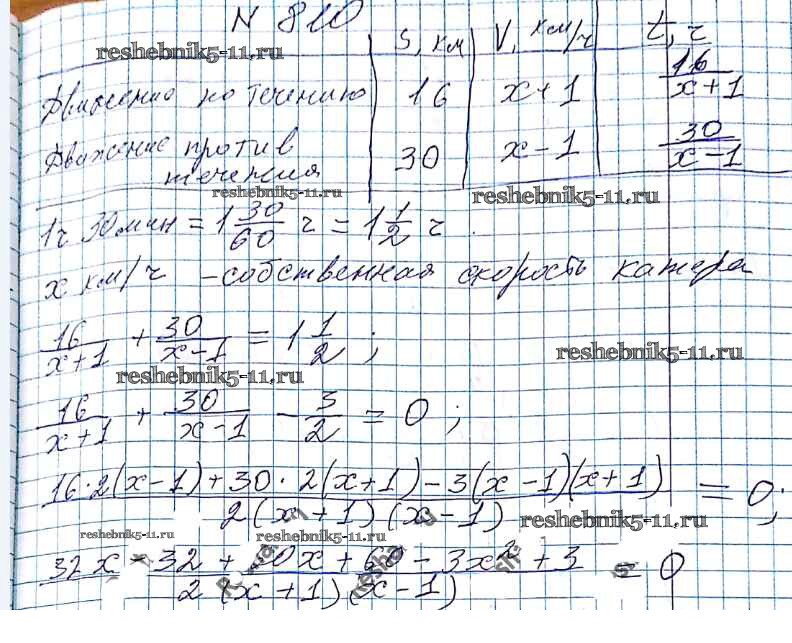 N 810
reshebnik5-11.ru
S, км V, км/ч t, ч
Движение по течению 16 x+1 16/(x+1)
Движение против течения 30 x-1 30/(x-1)
reshebnik5-11.ru
reshebnik5-11.ru
1ч 30мин = 1 30/60 ч = 1 1/2 ч.
x км/ч - собственная скорость катера
16/(x+1) + 30/(x-1) = 1 1/2;
reshebnik5-11.ru
reshebnik5-11.ru
16/(x+1) + 30/(x-1) - 3/2 = 0;
(16·2(x-1)+30·2(x+1)-3(x-1)(x+1))/(2(x+1)(x-1)) = 0;
reshebnik5-11.ru
reshebnik5-11.ru
(32x-32+30x+60-3x²+3)/(2(x+1)(x-1)) = 0